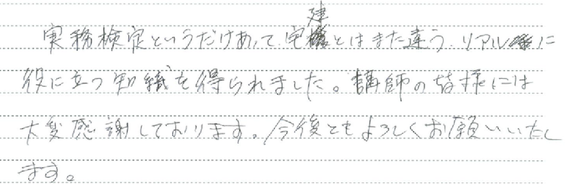 実務検定というだけあって宅建とはまた違う、リアルに
役に立つ知識を得られました。講師の皆様には
大変感謝しております。今後ともよろしくお願いいたし
ます。